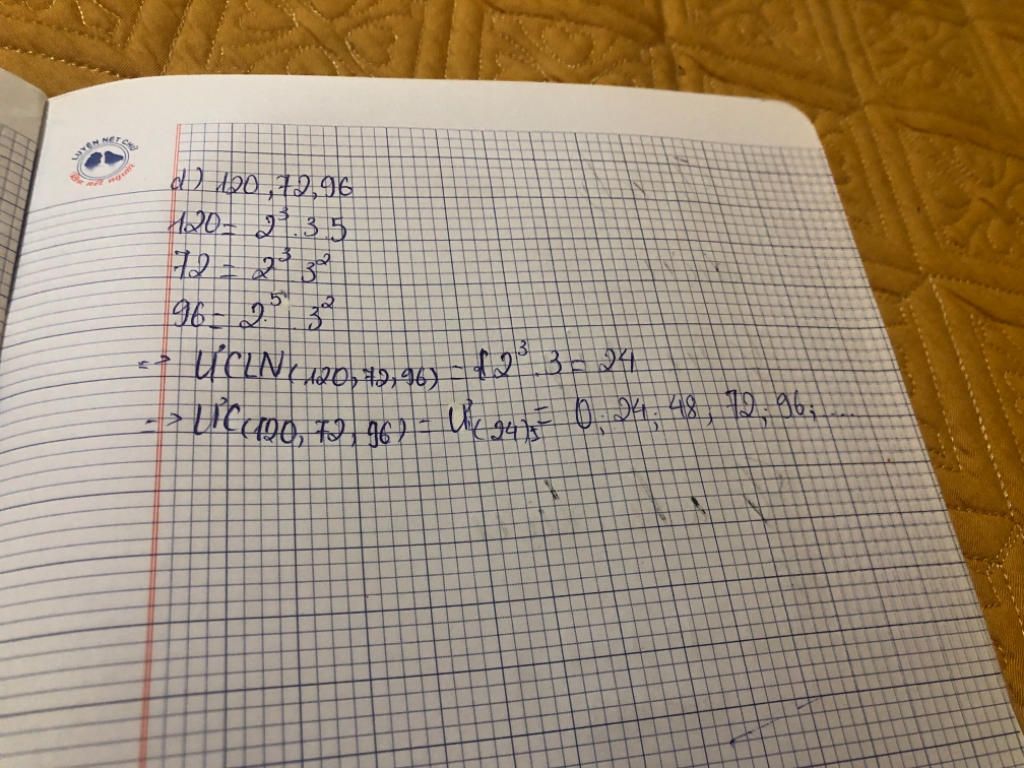 LUYỆN NÉT CHỮ
Rèn nết người
d) 120, 72, 96
120 = 2³.3.5
72 = 2³ 3²
96 = 2⁵. 3²
=> ƯCLN(120, 72, 96) = 2³.3 = 24
=> ƯC(120, 72, 96) = Ư(24) = 0; 24; 48; 72; 96; .....